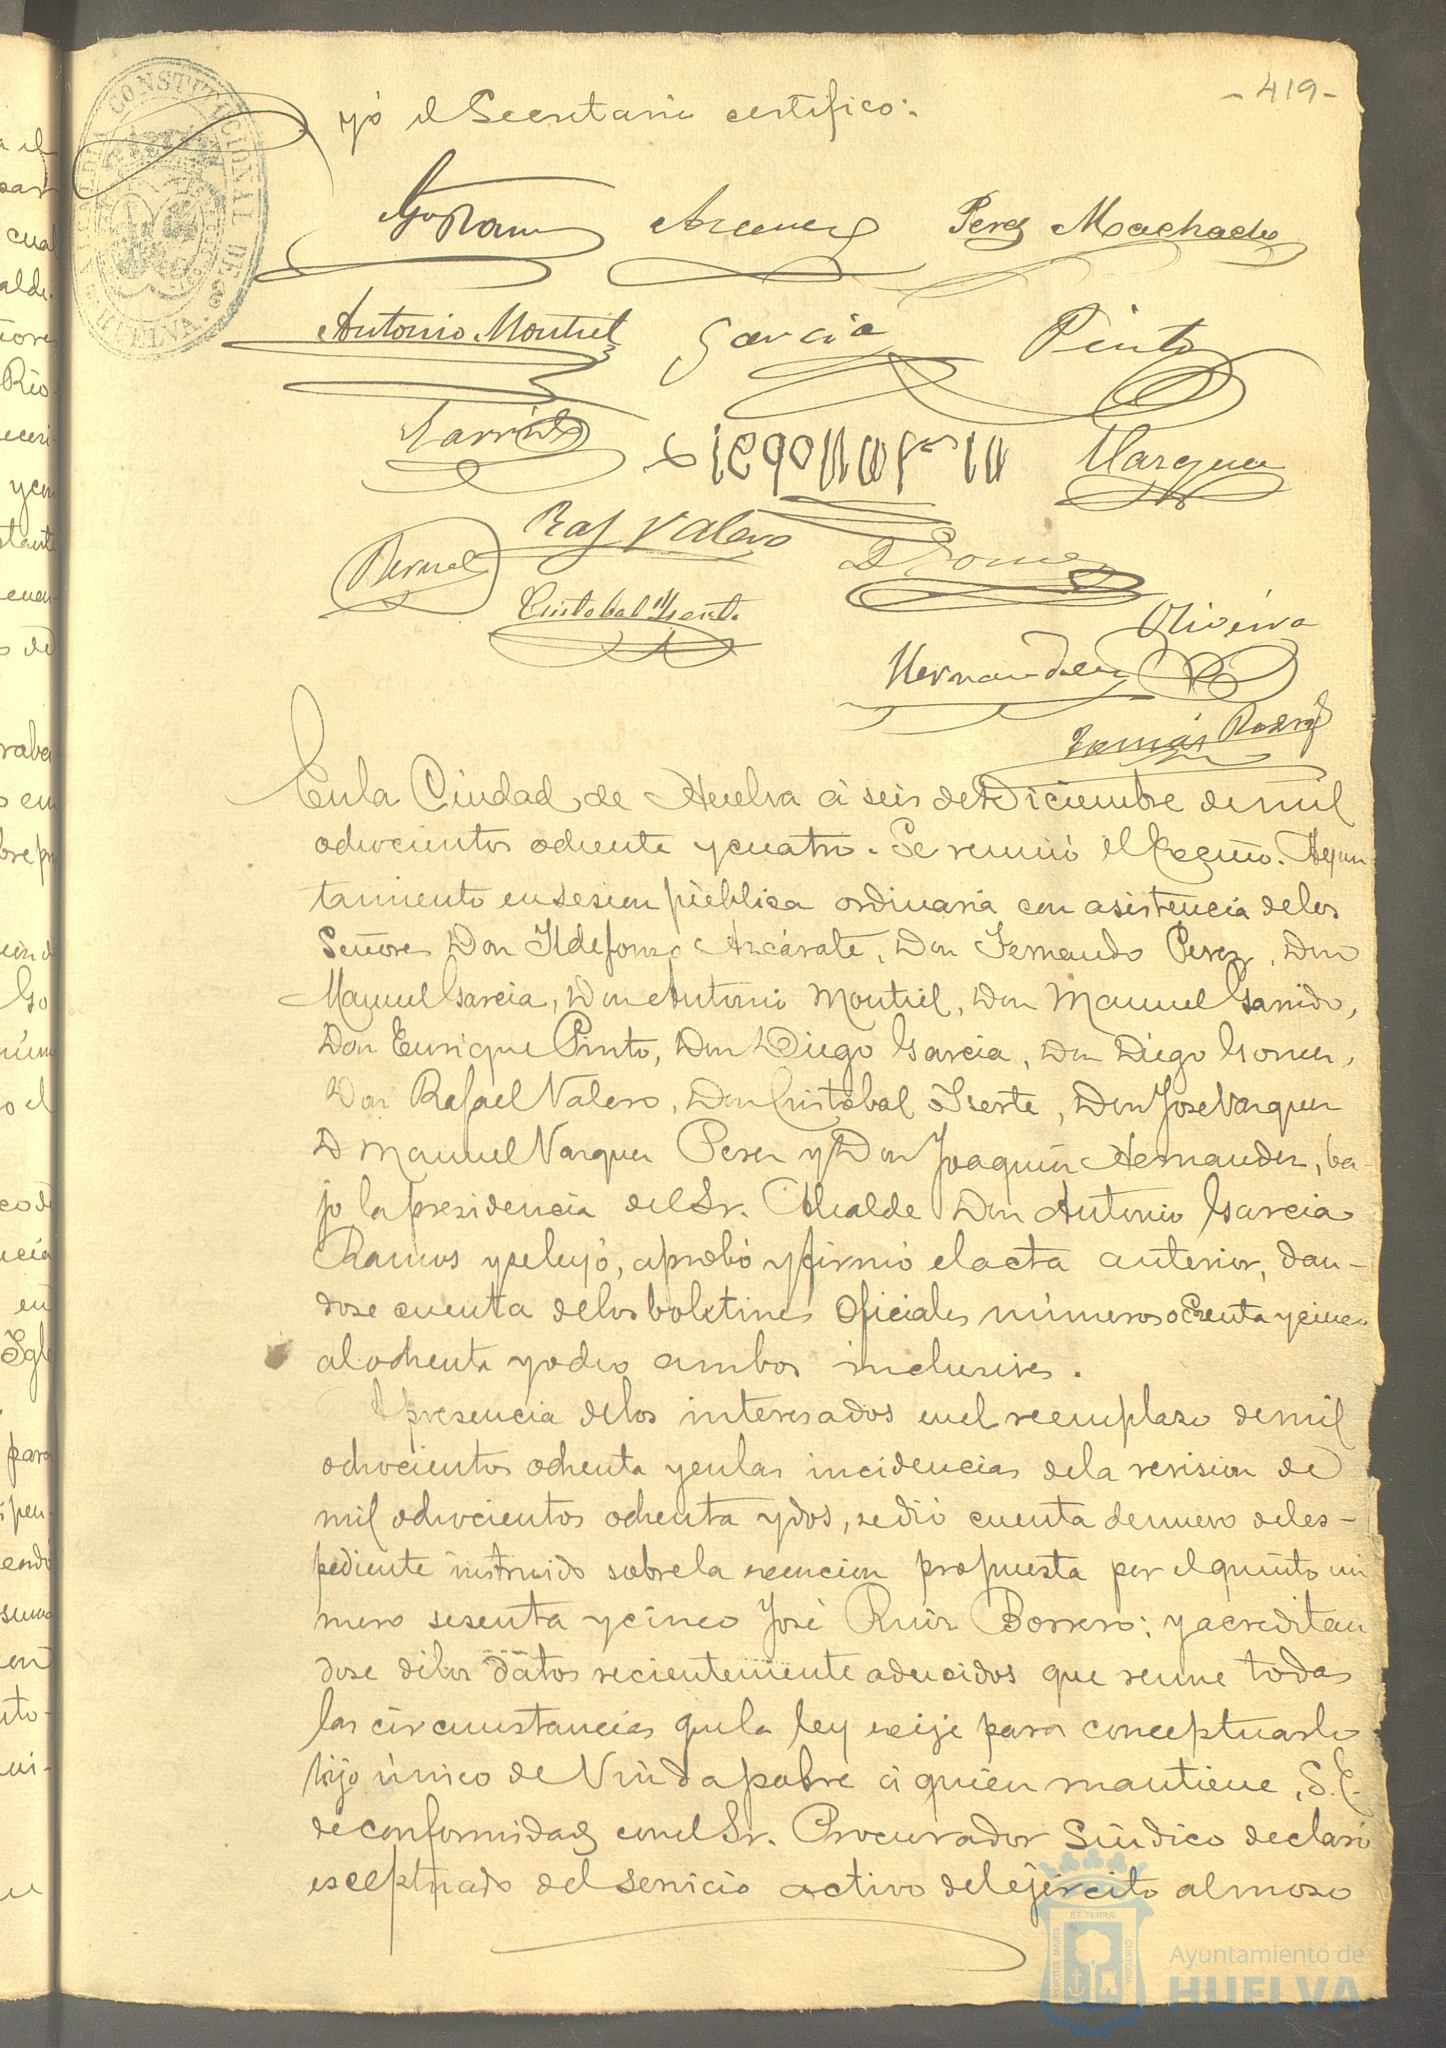 -419-
yó el Secretario certifico:
Perez Machado
Antonio Montiel Garcia Pinto
Garrido Diego Garcia Vazquez
Raf Valero
Bernal D Gomez
Cristobal Iserte
Oliveira
Hernandez
Tomás Rodrg
En la Ciudad de Huelva á seis de Diciembre de mil
ochocientos ochenta y cuatro. Se reunió el Excmo. Ayun
tamiento en sesion pública ordinaria con asistencia de los
Señores Don Ildefonso Azcárate, Don Fernando Perez, Don
Manuel Garcia, Don Antonio Montiel, Don Manuel Garrido,
Don Enrique Pinto, Don Diego Garcia, Don Diego Gomez,
Don Rafael Valero, Don Cristobal Iserte, Don Jose Vazquez
D Manuel Vazquez Perez y Don Joaquin Hernandez, ba-
jo la presidencia del Sr. Alcalde Don Antonio Garcia
Ramos y se leyó, aprobó y firmó el acta anterior, dan-
dose cuenta de los boletines Oficiales números ochenta y cinco
al ochenta y ocho ambos inclusives.
A presencia de los interesados en el reemplazo de mil
ochocientos ochenta y en las incidencias de la revision de
mil ochocientos ochenta y dos, se dió cuenta de nuevo del es-
pediente instruido sobre la esencion propuesta por el quinto nú
mero sesenta y cinco José Ruiz Borrero; y acreditan
dose de los datos recientemente aducidos que reune todas
las circunstancias que la ley exije para conceptuarlo
hijo único de Viuda pobre á quien mantiene, S.E.
de conformidad con el Sr. Procurador Síndico declaró
esceptuado del servicio activo del ejército al mozo
ALCALDIA CONSTITUCIONAL DE HUELVA
PORTUS MARIS ET TERRÆ CUSTODIA
Ayuntamiento de
HUELVA